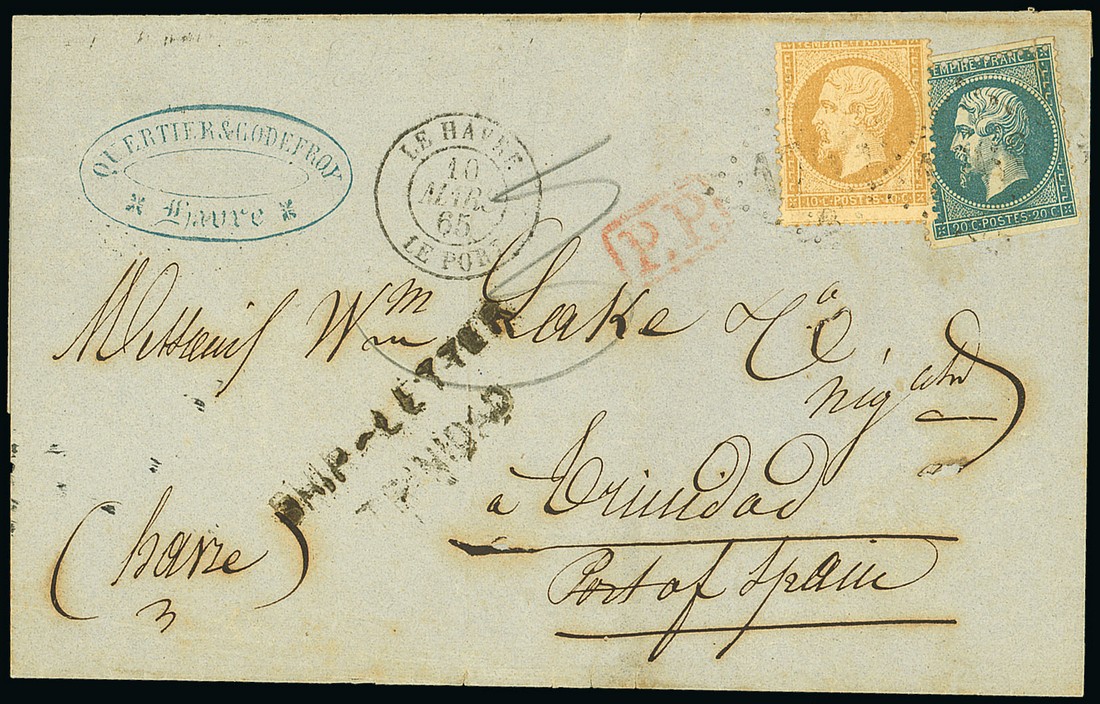 EMPIRE FRANC
10 C · POSTES · 10 C
EMPIRE · FRANC
20 C · POSTES · 20 C
QUERTIER & GODEFROY
Havre
LE HAVRE
10
MARS
65
LE PORT
P.P.
Messieurs Wm Lake & Co
SHIP-LETTER
TRINIDAD
à Trinidad
Port of Spain